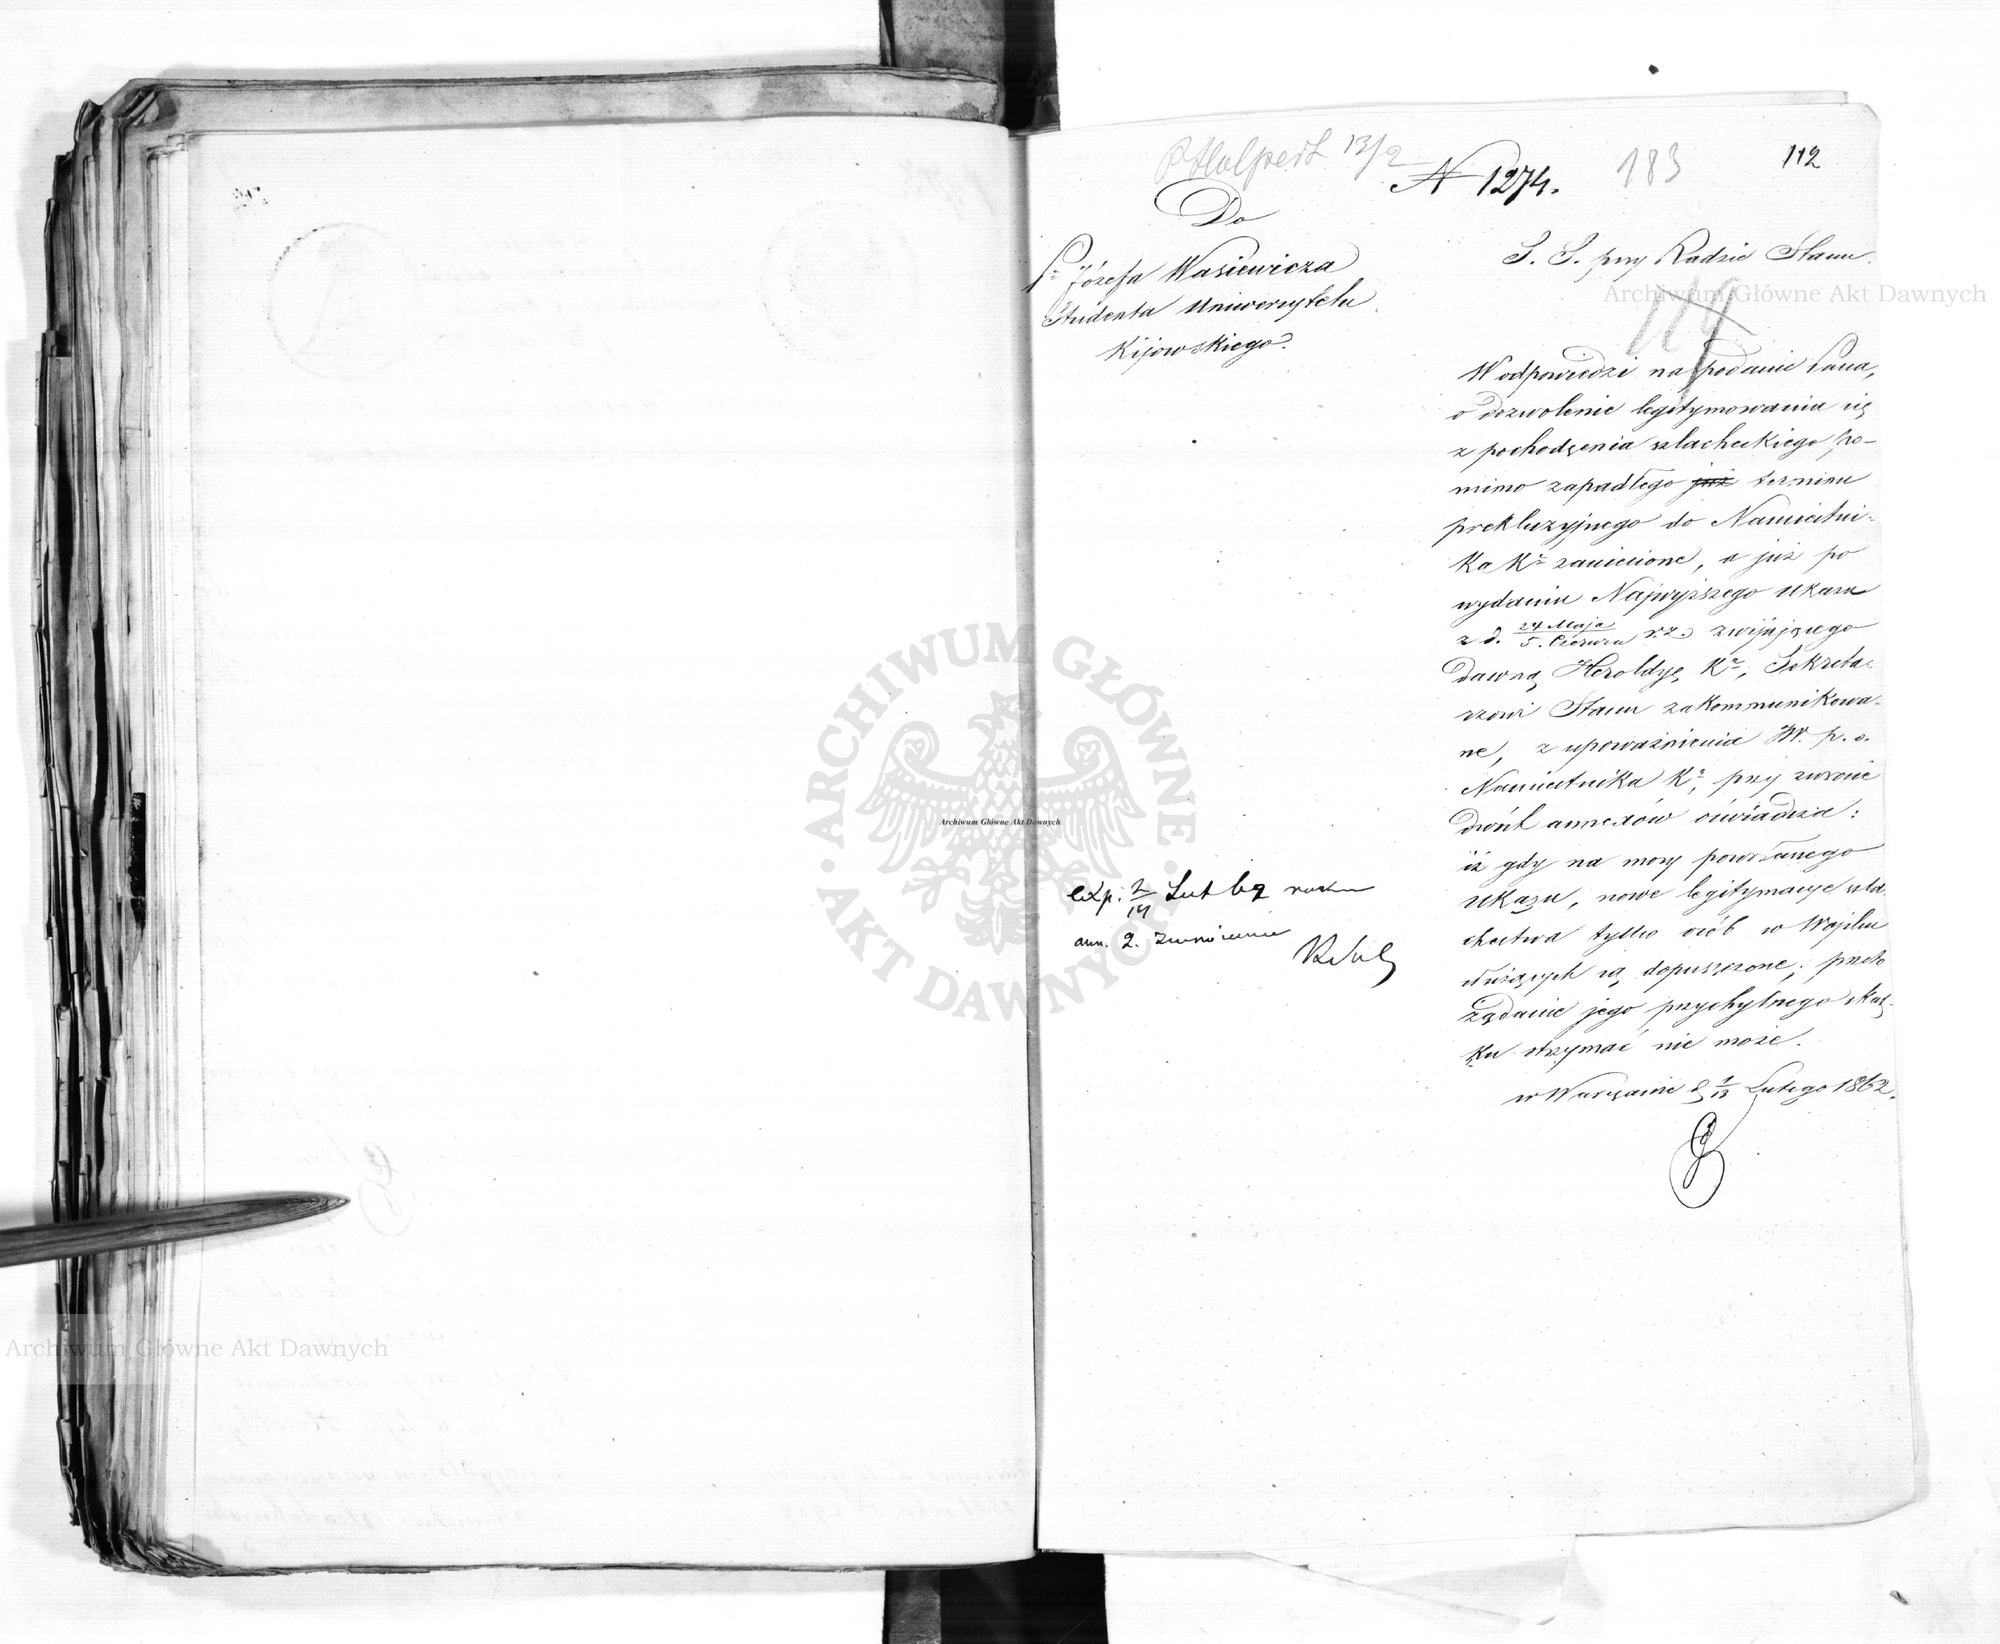 P Halpert 13/2
N 1274.
183
112
Do
Pa Józefa Wasiewicza
Studenta Uniwersytetu
Kijowskiego.
S. S. przy Radzie Stanu.
119
W odpowiedzi na podanie Pana,
o dozwolenie legitymowania się
z pochodzenia szlacheckiego po-
mimo zapadłego już terminu
prekluzyjnego do Namiestni-
ka Kr. zaniesione, a już po
wydaniu Najwyższego Ukazu
z d. 24 Maja / 5 Czerwca r.z. zwijającego
dawną Heroldyę Kr., Sekreta-
rzowi Stanu zakommunikowa-
ne, z upoważnienia JW. p. o.
Namiestnika Kr., przy zwrocie
dwóch annexów oświadcza:
iż gdy na mocy powołanego
Ukazu, nowe legitymacye szla-
chectwa tylko osób w Wojsku
służących są dopuszczone; przeto
żądanie jego przychylnego skut-
ku otrzymać nie może.
w Warszawie d. 1/13 Lutego 1862.
exp. 2/14 Lut 62 roku
ann. 2. zwrócono
Archiwum Główne Akt Dawnych
ARCHIWUM GŁÓWNE AKT DAWNYCH
Archiwum Główne Akt Dawnych
Archiwum Główne Akt Dawnych